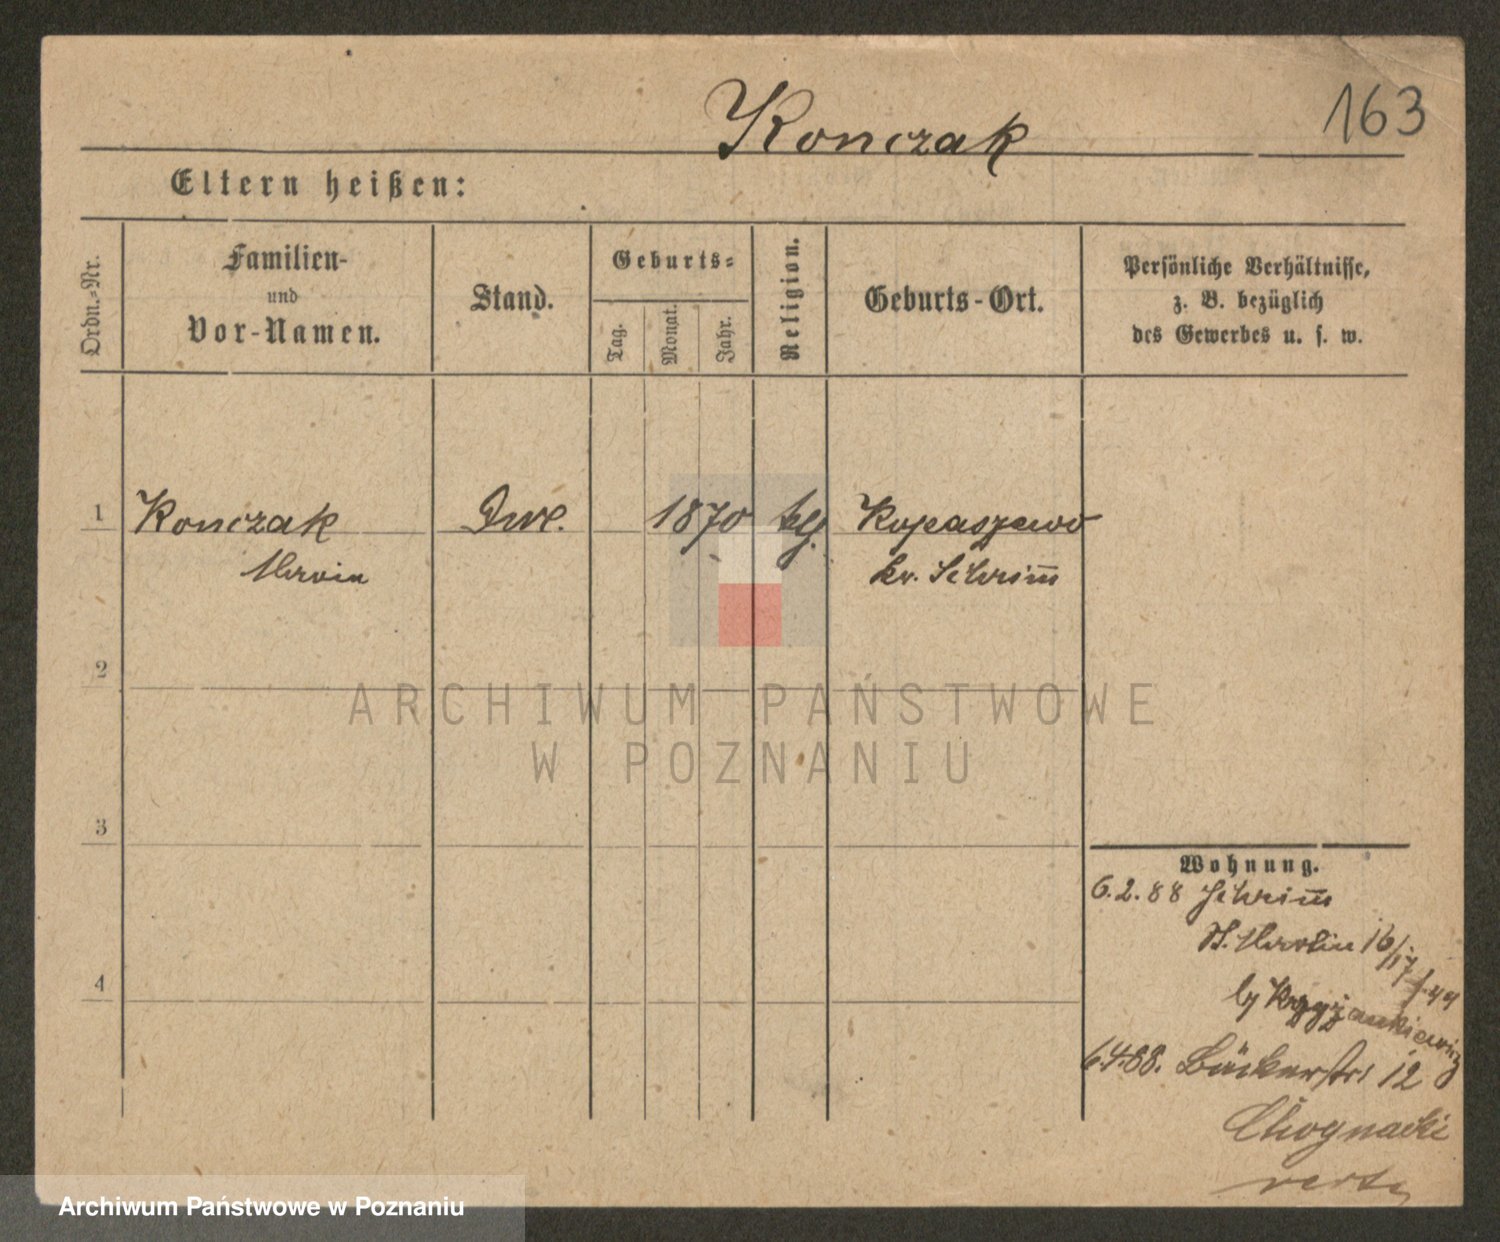 Konczak
163
Eltern heißen:
Ordn.-Nr.
Familien-
und
Vor-Namen.
Stand.
Geburts-
Tag.
Monat.
Jahr.
Religion.
Geburts-Ort.
Persönliche Verhältnisse,
z. B. bezüglich
des Gewerbes u. s. w.
1
Konczak
1870
Kopaszewo
kr. Schrim̅
2
ARCHIWUM PAŃSTWOWE
W POZNANIU
3
4
Wohnung.
6.2.88 Schrim̅
St. Martin 16/17
by Krzyżankiewicz
6.4.88. Bäckerstr. 12
Archiwum Państwowe w Poznaniu